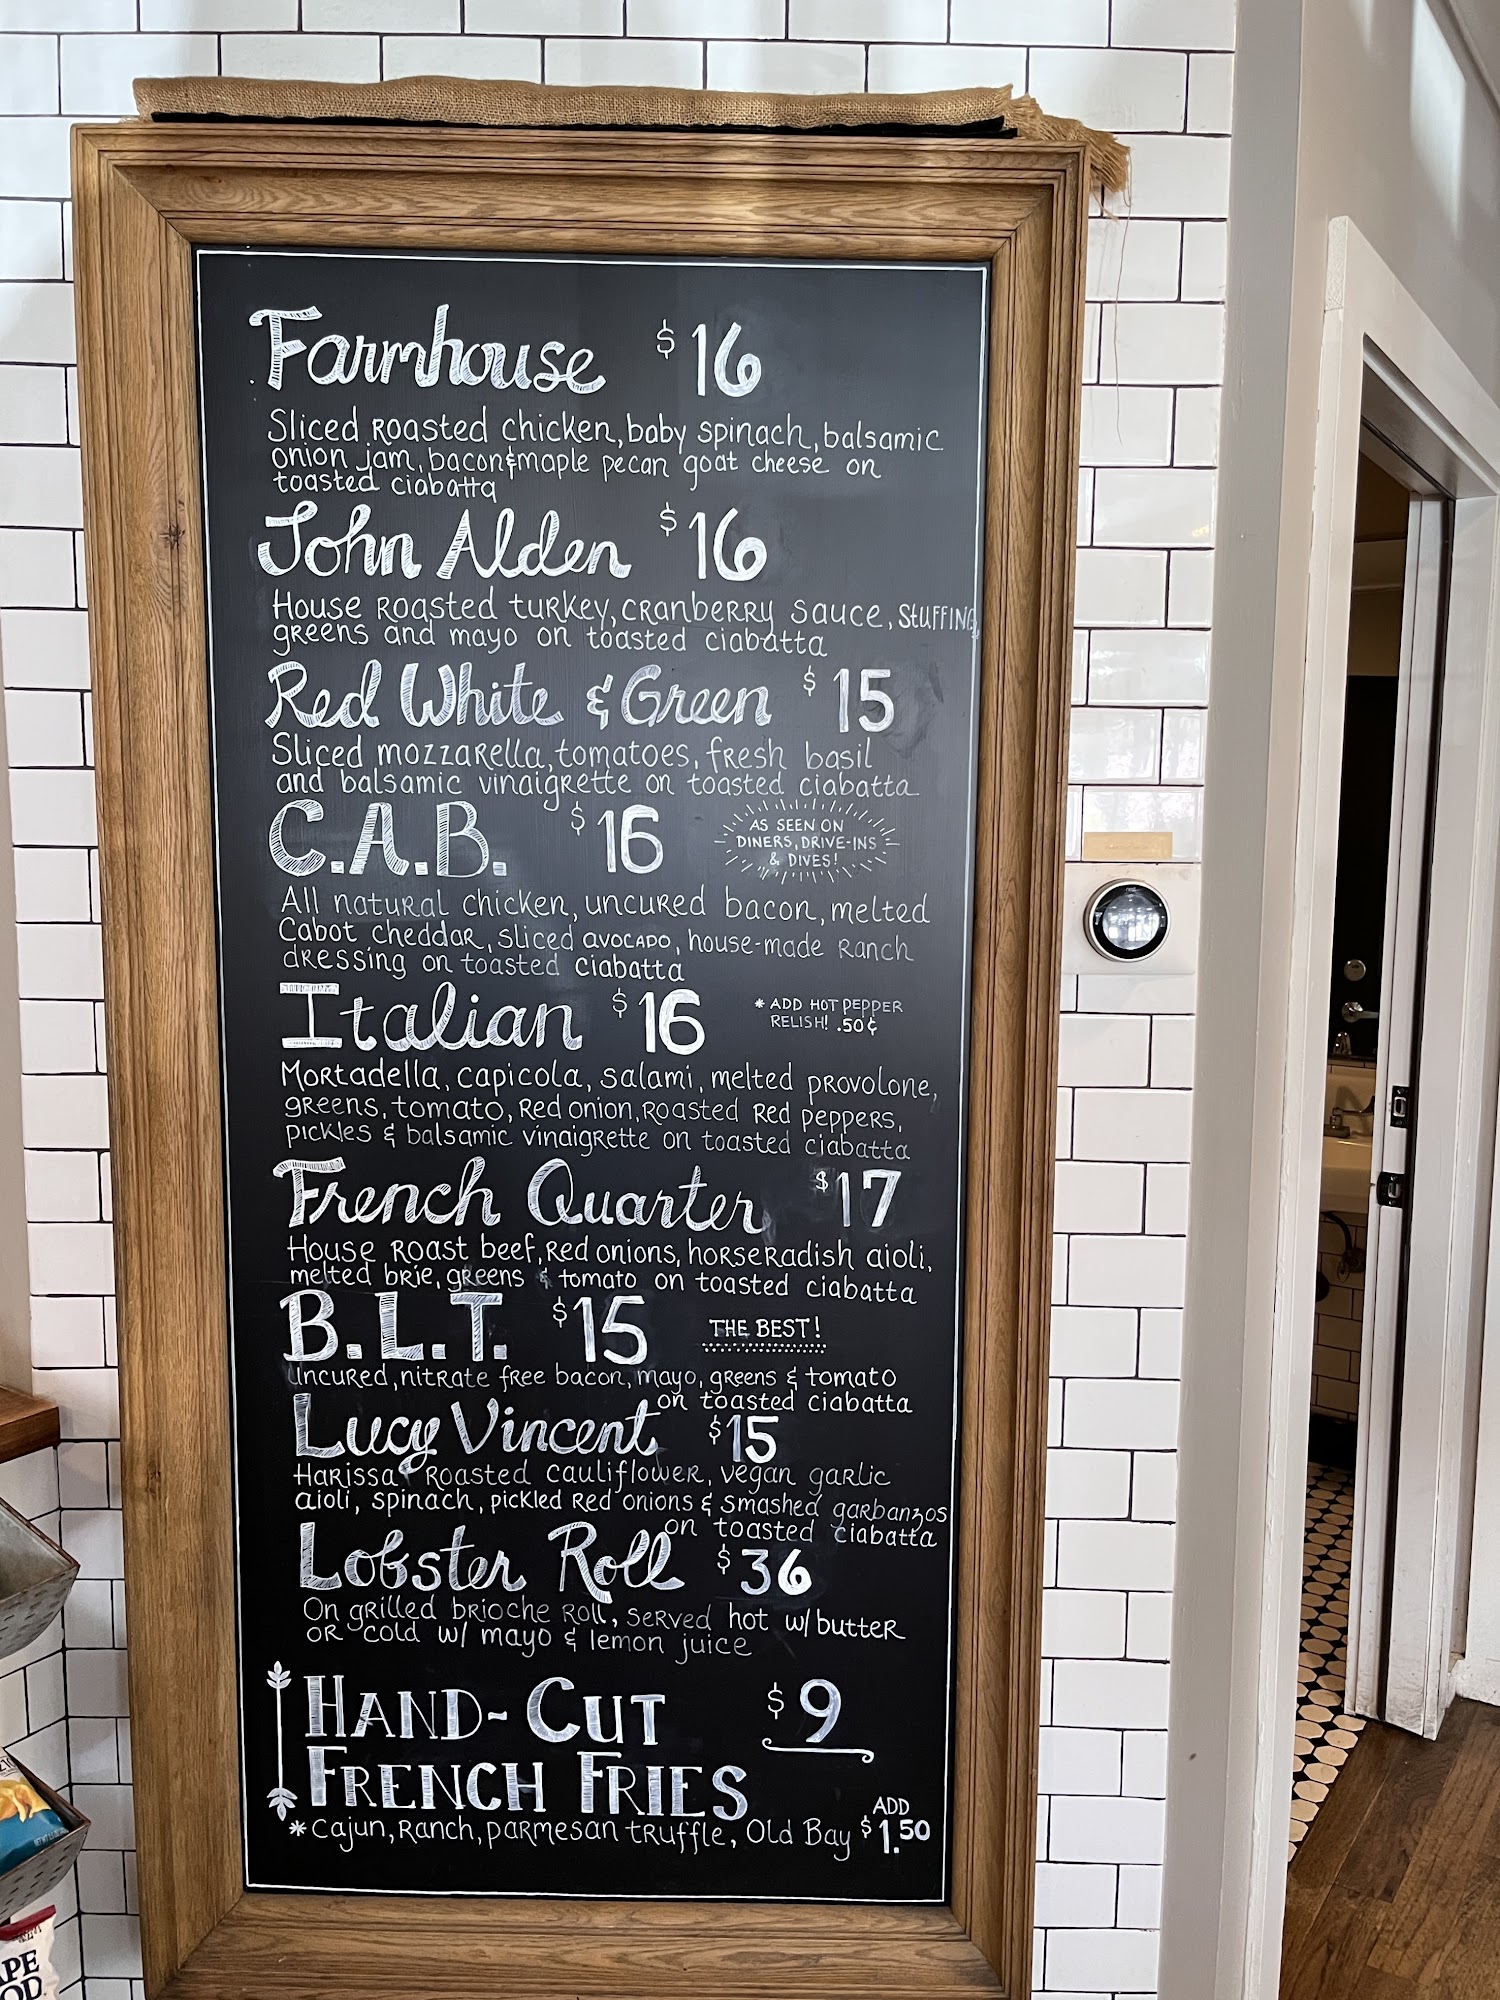 Farmhouse $16
Sliced Roasted chicken, baby spinach, balsamic
onion jam, bacon & maple pecan goat cheese on
toasted ciabatta
John Alden $16
House Roasted turkey, cranberry sauce, stuffing,
greens and mayo on toasted ciabatta
Red White & Green $15
Sliced mozzarella, tomatoes, fresh basil
and balsamic vinaigrette on toasted ciabatta
C.A.B. $16
AS SEEN ON
DINERS, DRIVE-INS
& DIVES!
All natural chicken, uncured bacon, melted
Cabot cheddar, sliced avocado, house-made Ranch
dressing on toasted ciabatta
Italian $16
* ADD HOT PEPPER
RELISH! .50¢
Mortadella, capicola, salami, melted provolone,
greens, tomato, Red onion, Roasted Red peppers,
pickles & balsamic vinaigrette on toasted ciabatta
French Quarter $17
House Roast beef, Red onions, horseradish aioli,
melted brie, greens & tomato on toasted ciabatta
B.L.T. $15 THE BEST!
uncured, nitrate free bacon, mayo, greens & tomato
on toasted ciabatta
Lucy Vincent $15
Harissa Roasted cauliflower, vegan garlic
aioli, spinach, pickled Red onions & smashed garbanzos
on toasted ciabatta
Lobster Roll $36
On grilled brioche Roll, served hot w/ butter
or cold w/ mayo & lemon juice
HAND-CUT $9
FRENCH FRIES
ADD
* Cajun, Ranch, parmesan truffle, Old Bay $1.50